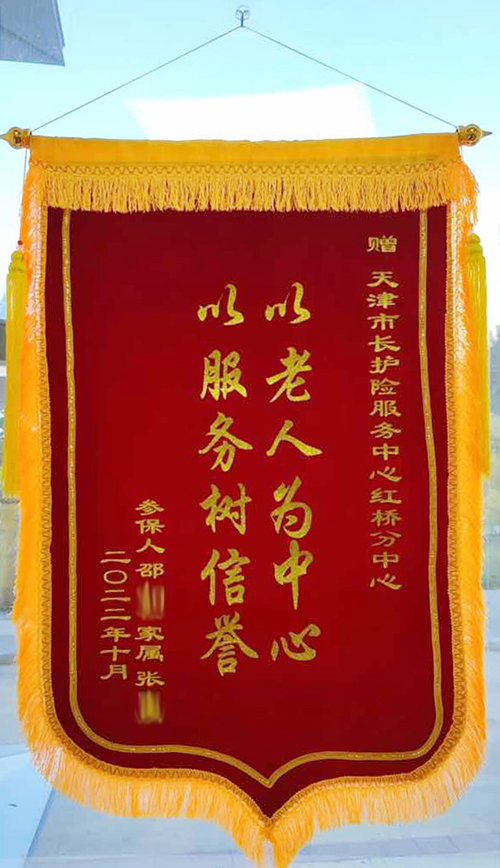 赠 天津市长护险服务中心红桥分中心
以老人为中心
以服务树信誉
参保人邵 家属张
二〇二二年十月